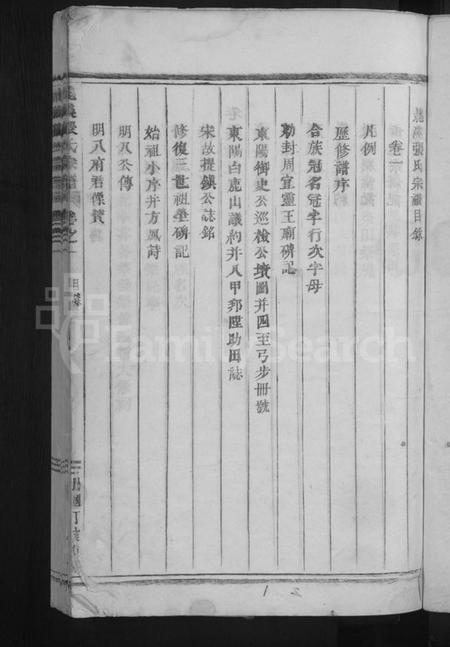 龍溪張氏宗譜目錄
卷一
凡例
歷修譜序
合族冠名冠字行次字母
勅封周宣靈王廟碑記
東陽御史公巡檢公墳圖并四至弓步冊號
東陽白鹿山議約并八甲邦陞助田誌
宋故提鎮公誌銘
修復三世祖塋碑記
始祖小序并方鳳詩
明八公傳
明八府君像贊
張氏宗譜 卷之一
目錄
民國丁亥
FamilySearch
1 2